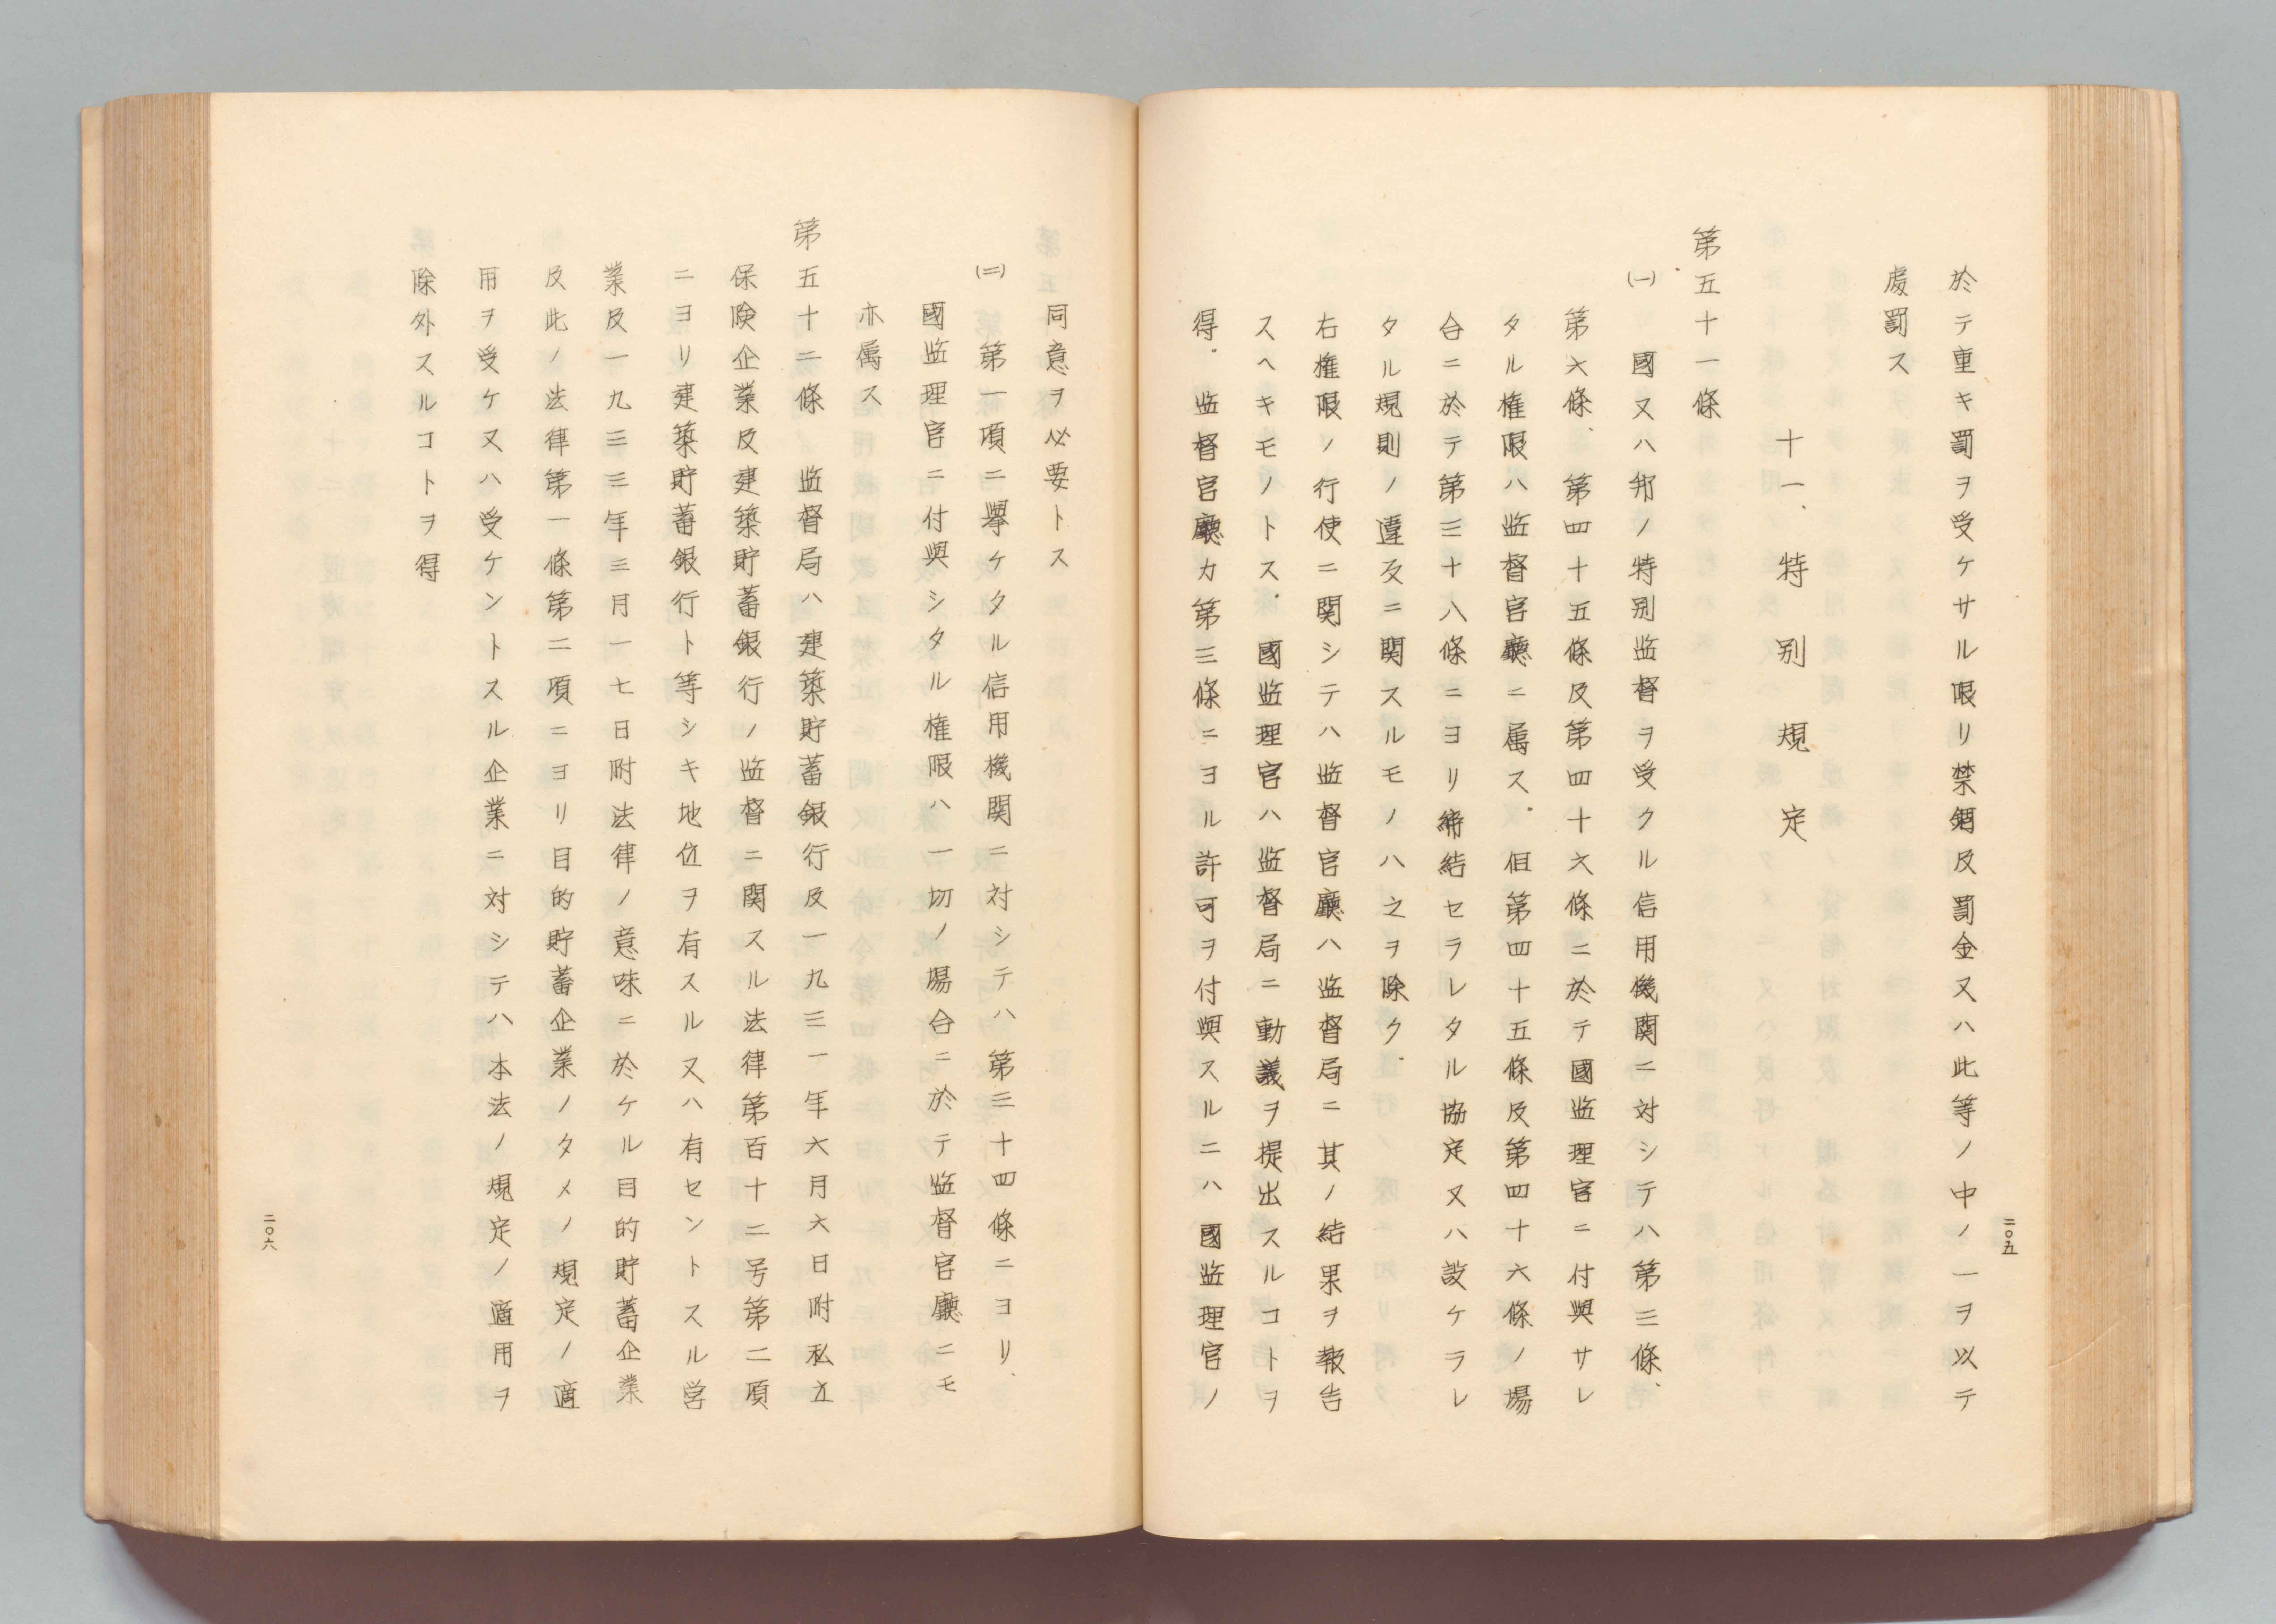 於テ重キ罰ヲ受ケサル限リ禁錮及罰金又ハ此等ノ中ノ一ヲ以テ
処罰ス
十一、特別規定
第五十一條
(一) 國又ハ邦ノ特別監督ヲ受クル信用機関ニ対シテハ第三條、
第六條、第四十五條及第四十六條ニ於テ國監理官ニ付與サレ
タル権限ハ監督官廳ニ属ス。但第四十五條及第四十六條ノ場
合ニ於テ第三十八條ニヨリ締結セラレタル協定又ハ設ケラレ
タル規則ノ違反ニ関スルモノハ之ヲ除ク.
右権限ノ行使ニ関シテハ監督官廳ハ監督局ニ其ノ結果ヲ報告
スヘキモノトス.國監理官ハ監督局ニ動議ヲ提出スルコトヲ
得.監督官廳カ第三條ニヨル許可ヲ付與スルニハ國監理官ノ
二〇五
同意ヲ必要トス
(二) 第一項ニ擧ケタル信用機関ニ対シテハ第三十四條ニヨリ、
國監理官ニ付與シタル権限ハ一切ノ場合ニ於テ監督官廳ニモ
亦属ス
第五十二條 監督局ハ建築貯蓄銀行及一九三一年六月六日附私立
保険企業及建築貯蓄銀行ノ監督ニ関スル法律第百十二号第二項
ニヨリ建築貯蓄銀行ト等シキ地位ヲ有スル又ハ有セントスル営
業及一九三三年三月一七日附法律ノ意味ニ於ケル目的貯蓄企業
及此ノ法律第一條第二項ニヨリ目的貯蓄企業ノタメノ規定ノ適
用ヲ受ケ又ハ受ケントスル企業ニ対シテハ本法ノ規定ノ適用ヲ
除外スルコトヲ得
二〇六